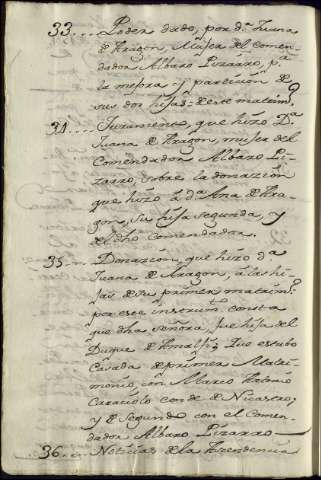 33.... Poder dado, por dª Juana
de Aragon, Muger del Comen-
dador Albaro Pizarro, pª
la mejora y particion de
sus dos hijas: de este matrimº
34.... Juramento, que hizo Dª
Juana de Aragon, muger del
Comendador Albaro Pi-
zarro, sobre la donazion
que hizo á dª Ana de Ara-
gon, su hija segunda, y
del dho comendador.
35... Donazion, que hizo dª
Juana de Aragon, á las hi-
jas de su primer matrimº:
por este instrumto consta
que dha señora, fue hija del
Duque de Amalfi; Que estubo
Casada de primer Matri-
monio, con Marco Antonio
Caraciolo conde de Nicastro;
y de segundo con el Comen-
dador Albaro Pizarro
36... Noticias de la Aszendencia